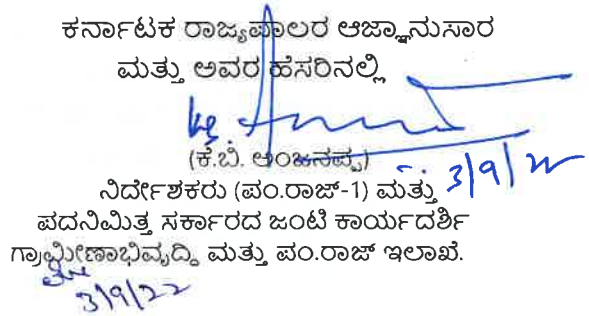 ಕರ್ನಾಟಕ ರಾಜ್ಯಪಾಲರ ಆಜ್ಞಾನುಸಾರ
ಮತ್ತು ಅವರ ಹೆಸರಿನಲ್ಲಿ
(ಕೆ.ಬಿ. ಆಂಜನಪ್ಪ)
3/9/22
ನಿರ್ದೇಶಕರು (ಪಂ.ರಾಜ್-1) ಮತ್ತು
ಪದನಿಮಿತ್ತ ಸರ್ಕಾರದ ಜಂಟಿ ಕಾರ್ಯದರ್ಶಿ
ಗ್ರಾಮೀಣಾಭಿವೃದ್ಧಿ ಮತ್ತು ಪಂ.ರಾಜ್ ಇಲಾಖೆ.
3/9/22